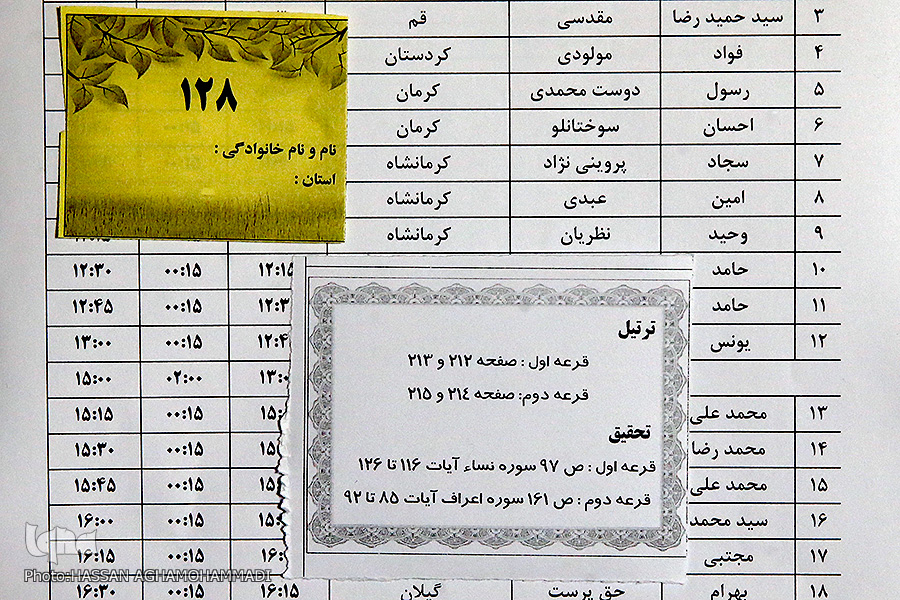 ۳ سید حمید رضا مقدسی قم
۴ فواد مولودی کردستان
۵ رسول دوست محمدی کرمان
۶ احسان سوختانلو کرمان
۷ سجاد پروینی نژاد کرمانشاه
۸ امین عبدی کرمانشاه
۹ وحید نظریان کرمانشاه
۱۰ حامد ۱۲:۱۵ ۰۰:۱۵ ۱۲:۳۰
۱۱ حامد ۰۰:۱۵ ۱۲:۴۵
۱۲ یونس ۰۰:۱۵ ۱۳:۰۰
۰۲:۰۰ ۱۵:۰۰
۱۳ محمد علی ۰۰:۱۵ ۱۵:۱۵
۱۴ محمد رضا ۰۰:۱۵ ۱۵:۳۰
۱۵ محمد علی ۰۰:۱۵ ۱۵:۴۵
۱۶ سید محمد ۰۰:۱۵ ۱۶:۰۰
۱۷ مجتبی ۰۰:۱۵ ۱۶:۱۵
۱۸ بهرام حق پرست گیلان ۱۶:۱۵ ۰۰:۱۵ ۱۶:۳۰
۱۲۸
نام و نام خانوادگی :
استان :
ترتیل
قرعه اول : صفحه ۲۱۲ و ۲۱۳
قرعه دوم: صفحه ۲۱٤ و ۲۱۵
تحقیق
قرعه اول : ص ۹۷ سوره نساء آیات ۱۱۶ تا ۱۲۶
قرعه دوم : ص ۱۶۱ سوره اعراف آیات ۸۵ تا ۹۲
iqna
Photo:HASSAN AGHAMOHAMMADI